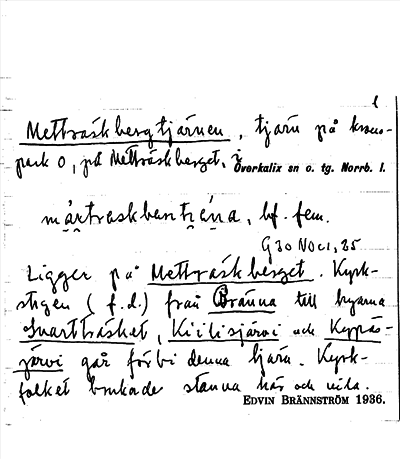 l
Mettraskbergtjärnen, tjärn på krono-
park o, på Mettraskberget, i
Överkalix sn o. tg. Norrb. l.
bf. fem.
G 30 NO c 1, 25
Ligger på Mettraskberget. Kyrk-
stigen (f.d.) från Bränna till byarna
Svartträsket, Kiilisjärvi och Keppä-
järvi går förbi denna tjärn. Kyrk-
folket brukade stanna här och vila.
EDVIN BRÄNNSTRÖM 1936.